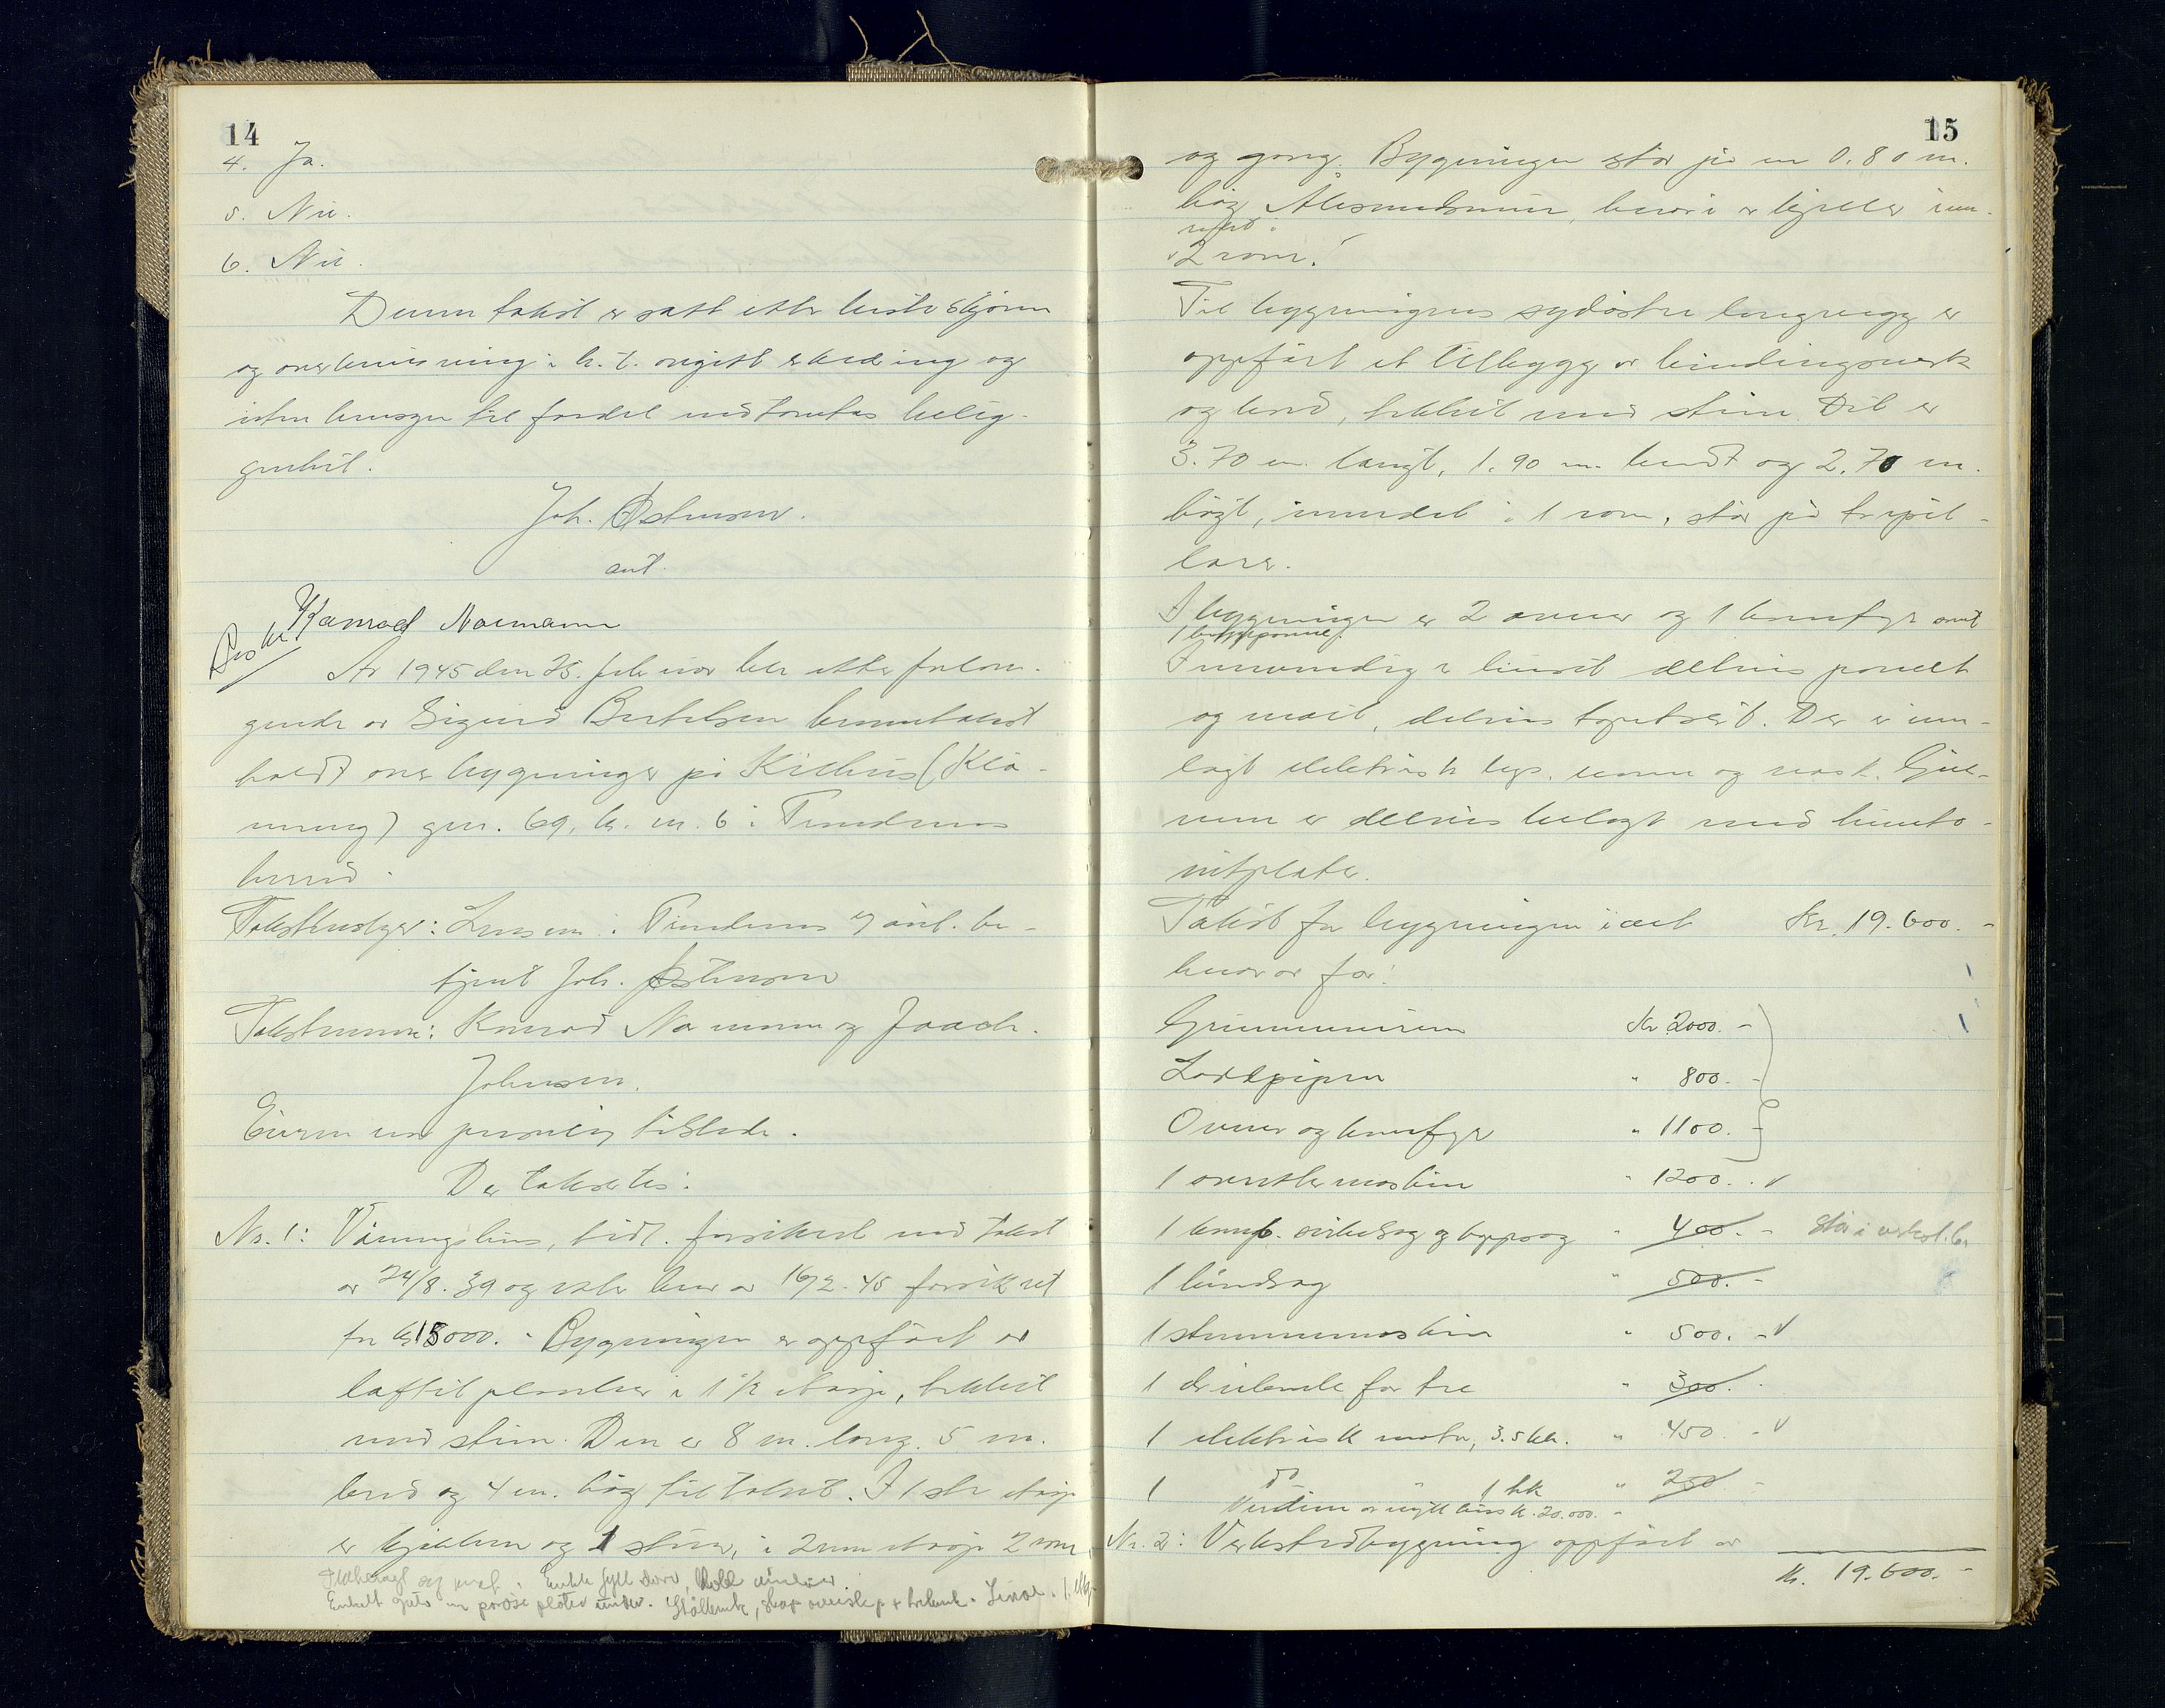 14
4. Ja.
5. Nei.
6. Nei.
Denne takst er satt etter beste skjönn
og overbevisning i h. t. avgitt erklæring og
uten hensyn til fordel ved tomtas belig-
genhet.
Joh. Østensen.
ant.
Konrad Normann
År 1945 den 25. februar ble etter forlan-
gende av Sigurd Bertelsen branntakst
holdt over bygninger på
gnr. 69, br. nr. 6 i
herred.
Takstbestyrer: Lensm. i ved ant. be-
tjent Joh. Østensen
Takstmenn: Konrad Normann og Joach.
Johnsen.
Eieren var personlig tilstede.
Der taksertes:
Nr. 1: Våningshus, tidl. forsikret ved takst
av 24/8. 39 og etter brev av 16/2-45 forsikret
for kr 15000.- Bygningen er oppfört av
laftet planker i 1 1/2 etasje, tekket
med stein. Den er 8 m. lang, 5 m.
bred og 4 m. hög til taket. I 1ste etasje
er kjökken og 1 stue, i 2nnen etasje 2 rom
Enkelt plater under.
15
og gang. Bygningen står på en 0.80 m.
hög mur, hvori er kjeller inn-
redet i
2 rom.
Til bygningens sydöstre langvegg er
oppfört et tilbygg av bindingsverk
og bord, tekket med stein. Det er
3.70 m. langt, 1.90 m. bredt og 2.70 m.
högt, inndelt i 1 rom, står på trepil-
larer.
I bygningen er 2 ovner og 1 komfyr samt
1 bryggepanne.
Innvendig er huset delvis panelt
og malt, delvis tapetsert. Der er inn-
lagt elektrisk lys, vann og vask. Gul-
vene er delvis belagt med
plater.
Takst for bygningen i alt Kr. 19.600.-
hvorav for:
Grunnmuren Kr 2000.-
Loddpipen " 800.-
Ovner og komfyr " 1100.-
1 maskin " 1200.-
1 komb. sirkelsag og kappsag " 400.- Står i verkst.b.
1 båndsag " 500.-
1 stemmemaskin " 500.-
1 dreiebenk for tre " 300.
1 elektrisk motor, 3.5 hk. " 450.-
1 do " 1 hk " 250.-
Verdien av nytt hus kr. 20.000.-
Nr. 2: Verkstedbygning oppfört av
Kr. 19.600.-